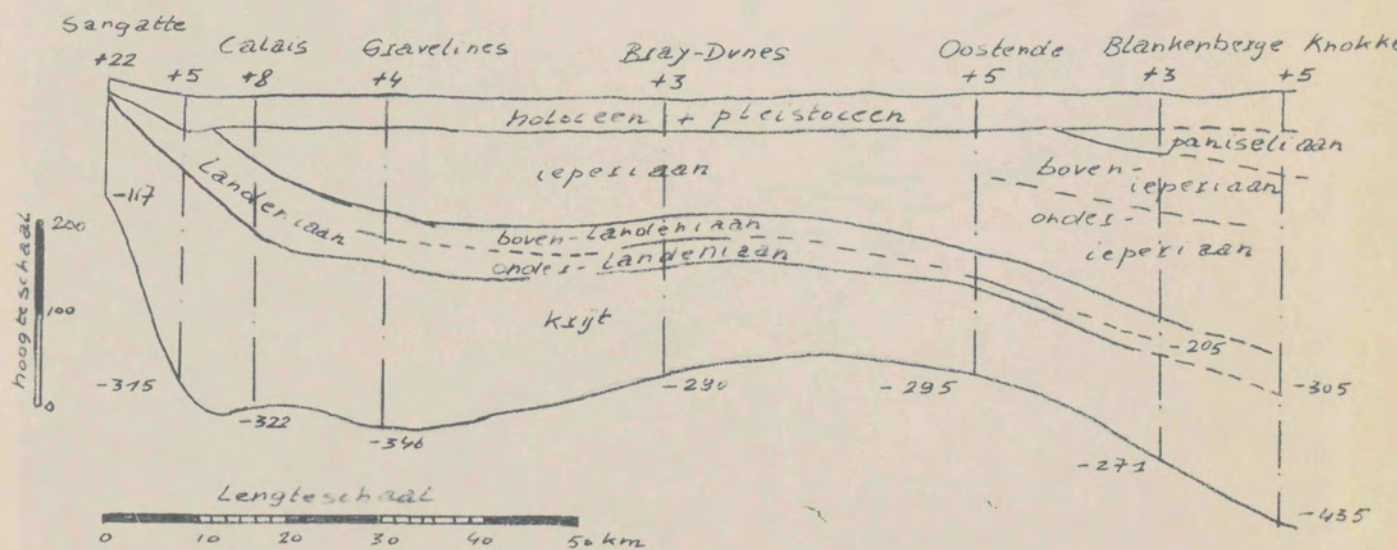 Sangatte
Calais
Gravelines
Bray-Dunes
Oostende
Blankenberge
Knokke
+22
+5
+8
+4
+3
+5
+3
+5
holoceen + pleistoceen
paniseliaan
ieperiaan
boven-
ieperiaan
onder-
ieperiaan
Landeniaan
boven-Landeniaan
onder-Landeniaan
krijt
-117
-315
-322
-346
-290
-295
-205
-305
-271
-435
hoogteschaal
200
100
0
Lengteschaal
0 10 20 30 40 50 km